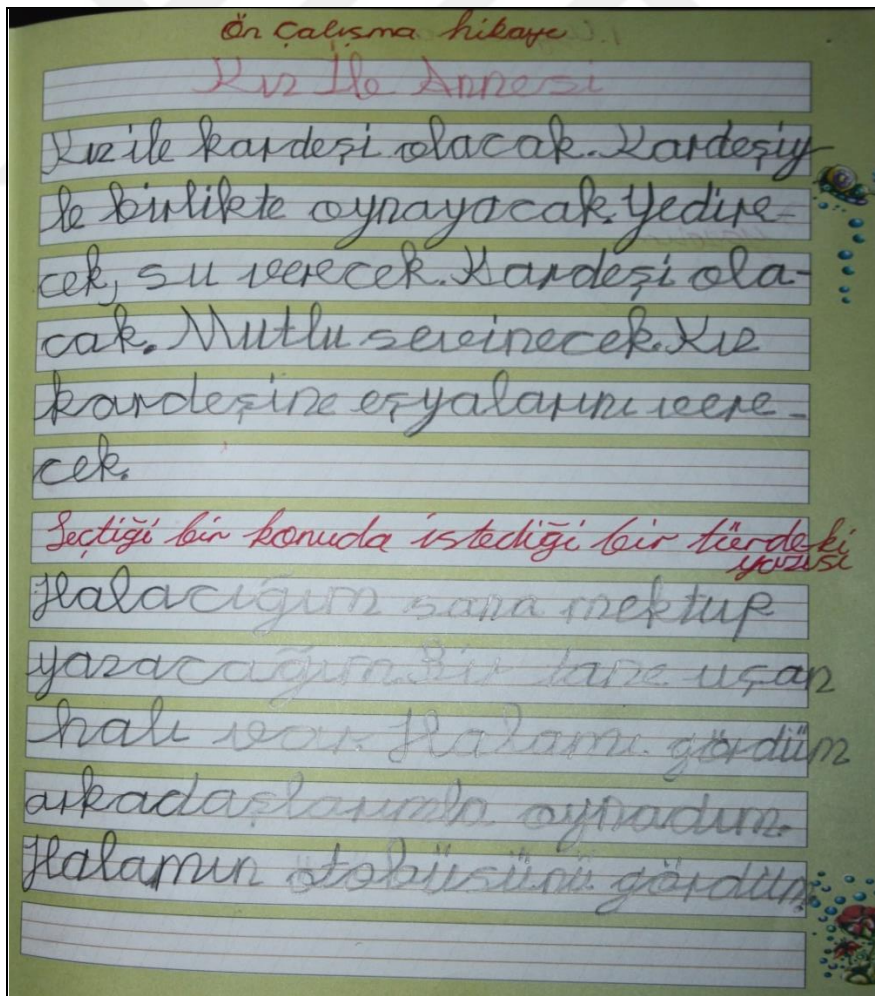 Ön Çalışma hikaye
Kız İle Annesi
Kız ile kardeşi olacak. Kardeşiy
le birlikte oynayacak. Yedire-
cek, su verecek. Kardeşi ola-
cak. Mutlu sevinecek. Kız
kardeşine eşyalarını vere-
cek.
Seçtiği bir konuda istediği bir türdeki
yazısı
Halacığım sana mektup
yazacağım. Bir tane uçan
halı var. Halamı gördüm
arkadaşlarımla oynadım.
Halamın otobüsünü gördüm